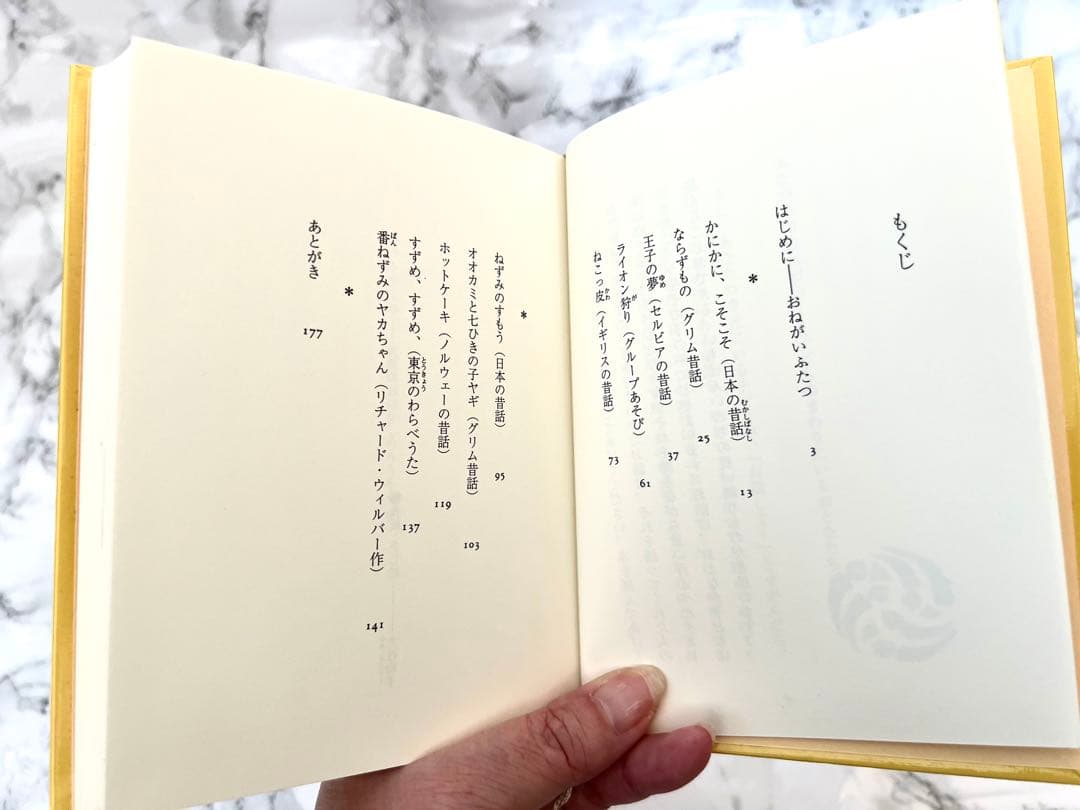 もくじ
はじめに――おねがいふたつ 3
*
かにかに、こそこそ（日本の昔話） 13
むかしばなし
ならずもの（グリム昔話） 25
王子の夢（セルビアの昔話） 37
ゆめ
ライオン狩り（グループあそび） 61
が
ねこっ皮（イギリスの昔話） 73
かわ
*
ねずみのすもう（日本の昔話） 95
オオカミと七ひきの子ヤギ（グリム昔話） 103
ホットケーキ（ノルウェーの昔話） 119
すずめ、すずめ、（東京のわらべうた） 137
とうきょう
番ねずみのヤカちゃん（リチャード・ウィルバー作） 141
ばん
*
あとがき 177